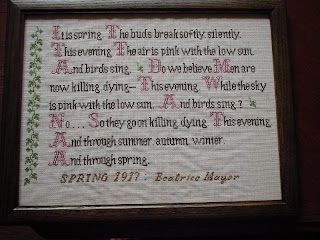 It is spring. The buds break softly, silently.
This evening The air is pink with the low sun
And birds sing. Do we believe Men are
now killing, dying— This evening While the sky
is pink with the low sun And birds sing?
No... So they go on killing, dying This evening
And through summer, autumn, winter.
And through spring.
SPRING 1917 : Beatrice Mayor